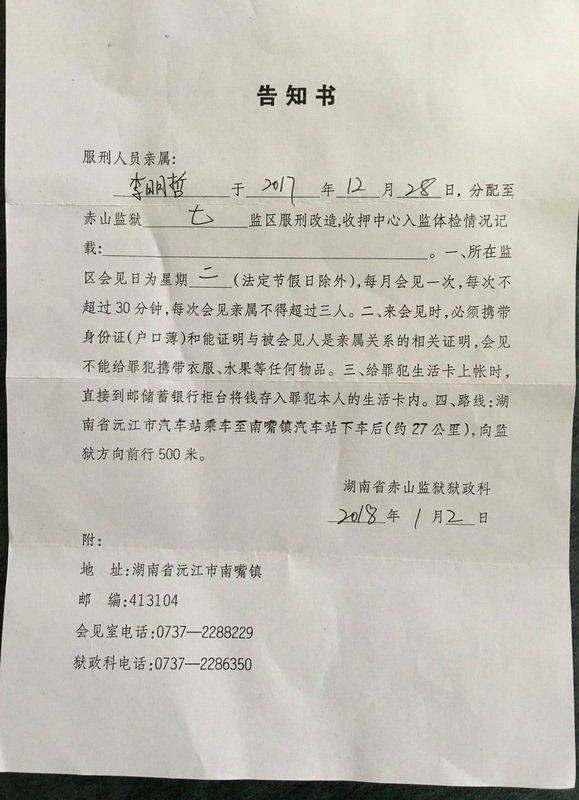 告知书
服刑人员亲属:
李明哲 于 2017 年 12 月 28 日, 分配至
赤山监狱 七 监区服刑改造,收押中心入监体检情况记
载:。一、所在监
区会见日为星期 二 (法定节假日除外),每月会见一次,每次不
超过30分钟,每次会见亲属不得超过三人。二、来会见时,必须携带
身份证(户口薄)和能证明与被会见人是亲属关系的相关证明,会见
不能给罪犯携带衣服、水果等任何物品。三、给罪犯生活卡上帐时,
直接到邮储蓄银行柜台将钱存入罪犯本人的生活卡内。四、路线:湖
南省沅江市汽车站乘车至南嘴镇汽车站下车后(约27公里),向监
狱方向前行500米。
湖南省赤山监狱狱政科
2018 年 1 月 2 日
附:
地 址:湖南省沅江市南嘴镇
邮 编:413104
会见室电话:0737—2288229
狱政科电话:0737—2286350